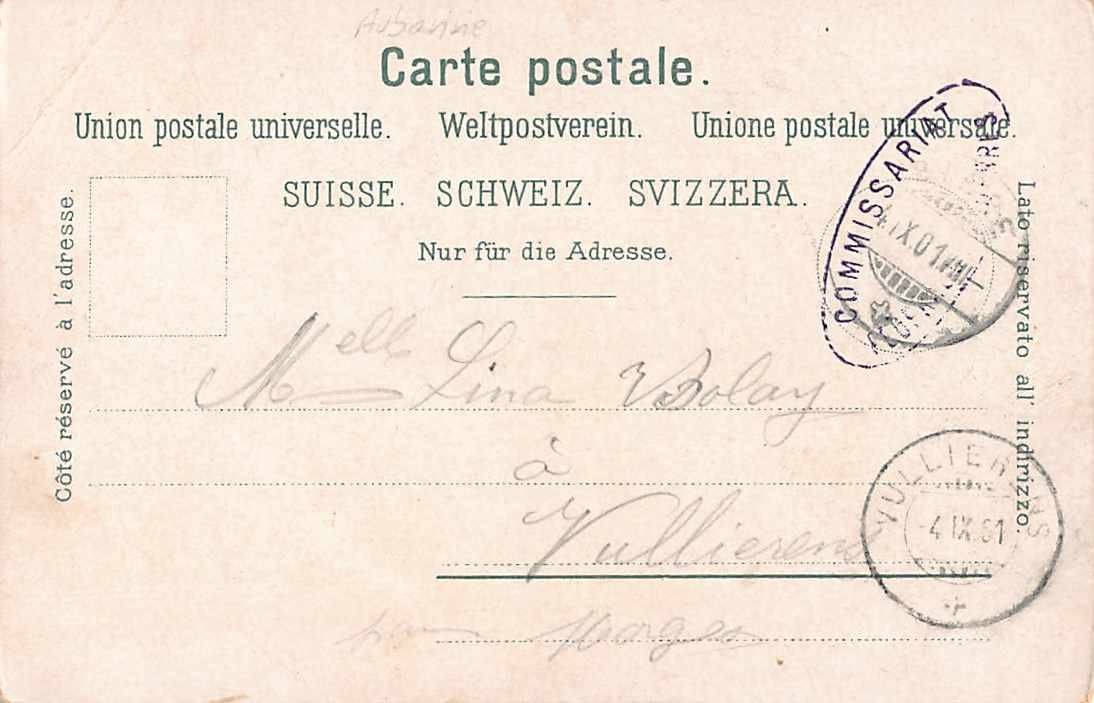 Aubonne
Carte postale.
Union postale universelle. Weltpostverein. Unione postale universale.
SUISSE. SCHWEIZ. SVIZZERA.
Nur für die Adresse.
Côté réservé à l'adresse.
Lato riservato all' indirizzo.
COMMISSARIAT
4.IX.01
Melle Lina Bolay
à
Vullierens
Morges
VULLIERENS
-4.IX.01